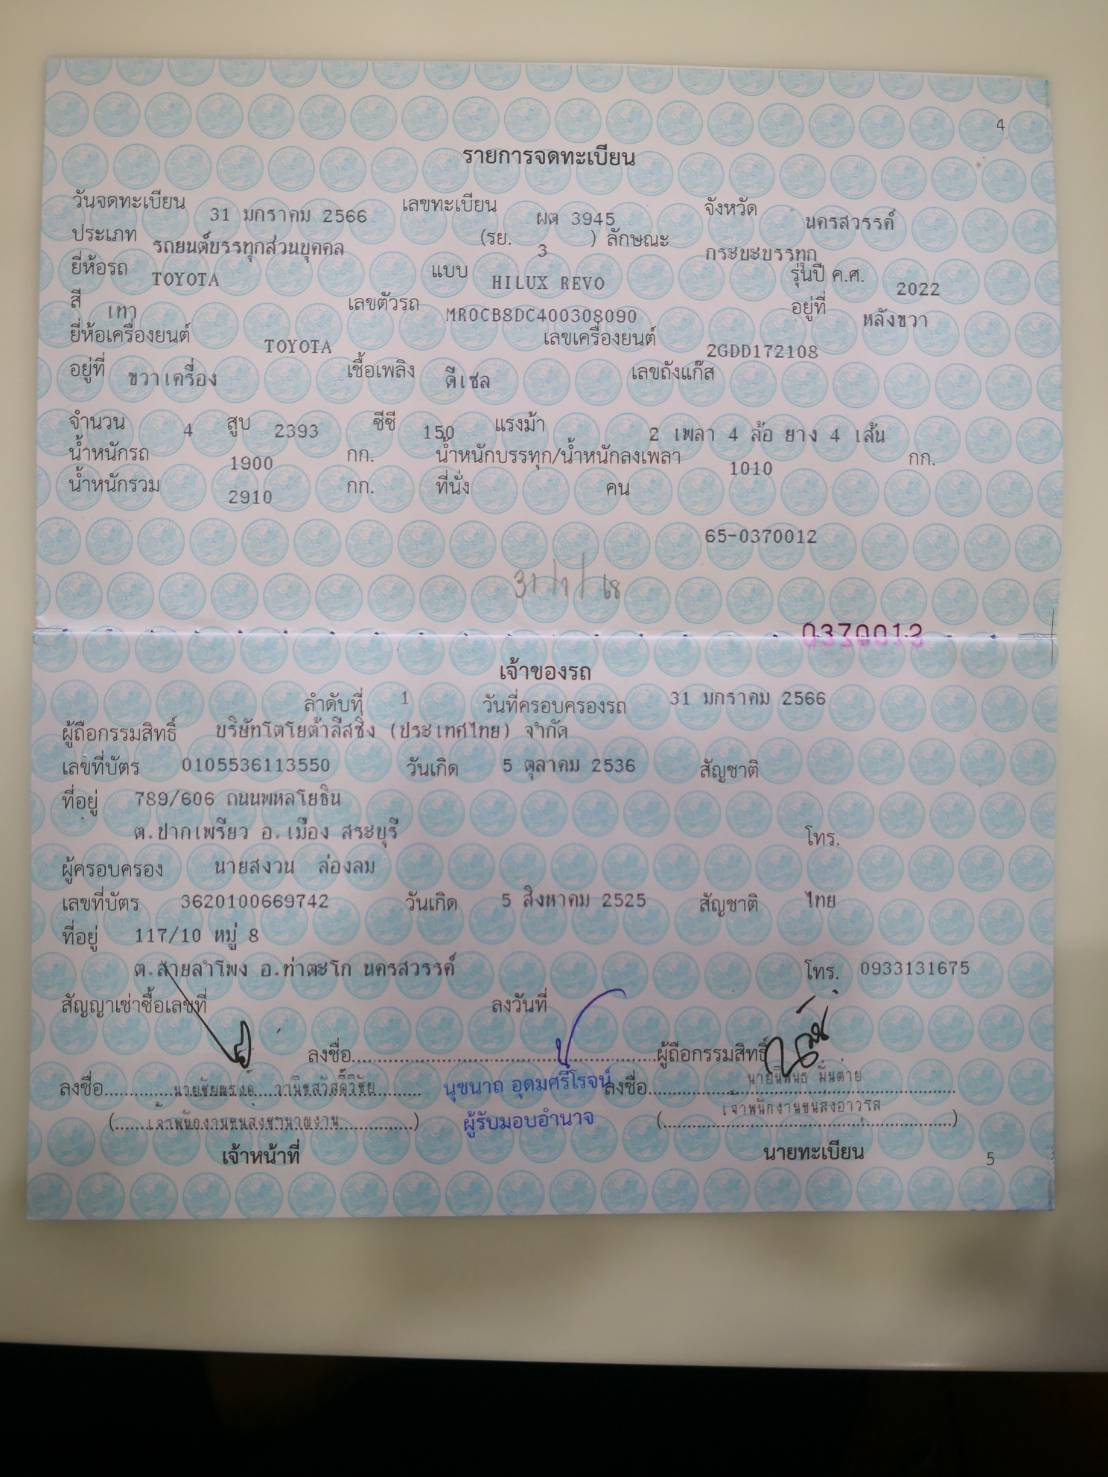 4
รายการจดทะเบียน
วันจดทะเบียน 31 มกราคม 2566 เลขทะเบียน ผต 3945 จังหวัด นครสวรรค์
ประเภท รถยนต์บรรทุกส่วนบุคคล (รย. 3 ) ลักษณะ กระบะบรรทุก
ยี่ห้อรถ TOYOTA แบบ HILUX REVO รุ่นปี ค.ศ. 2022
สี เทา เลขตัวรถ MR0CB8DC400308090 อยู่ที่ หลังขวา
ยี่ห้อเครื่องยนต์ TOYOTA เลขเครื่องยนต์ 2GDD172108
อยู่ที่ ขวาเครื่อง เชื้อเพลิง ดีเซล เลขถังแก๊ส
จำนวน 4 สูบ 2393 ซีซี 150 แรงม้า 2 เพลา 4 ล้อ ยาง 4 เส้น
น้ำหนักรถ 1900 กก. น้ำหนักบรรทุก/น้ำหนักลงเพลา 1010 กก.
น้ำหนักรวม 2910 กก. ที่นั่ง คน
65-0370012
31/1/68
0370012
เจ้าของรถ
ลำดับที่ 1 วันที่ครอบครองรถ 31 มกราคม 2566
ผู้ถือกรรมสิทธิ์ บริษัทโตโยต้าลีสซิ่ง (ประเทศไทย) จำกัด
เลขที่บัตร 0105536113550 วันเกิด 5 ตุลาคม 2536 สัญชาติ
ที่อยู่ 789/606 ถนนพหลโยธิน
ต.ปากเพรียว อ.เมือง สระบุรี โทร.
ผู้ครอบครอง นายสงวน ล่องลม
เลขที่บัตร 3620100669742 วันเกิด 5 สิงหาคม 2525 สัญชาติ ไทย
ที่อยู่ 117/10 หมู่ 8
ต.สายลำโพง อ.ท่าตะโก นครสวรรค์ โทร. 0933131675
สัญญาเช่าซื้อเลขที่ ลงวันที่
ลงชื่อ ผู้ถือกรรมสิทธิ์
ลงชื่อ นุชนาถ อุดมศรีโรจน์ ลงชื่อ
เจ้าพนักงานขนส่งชำนาญงาน ผู้รับมอบอำนาจ เจ้าพนักงานขนส่งอาวุโส
เจ้าหน้าที่ นายทะเบียน
5